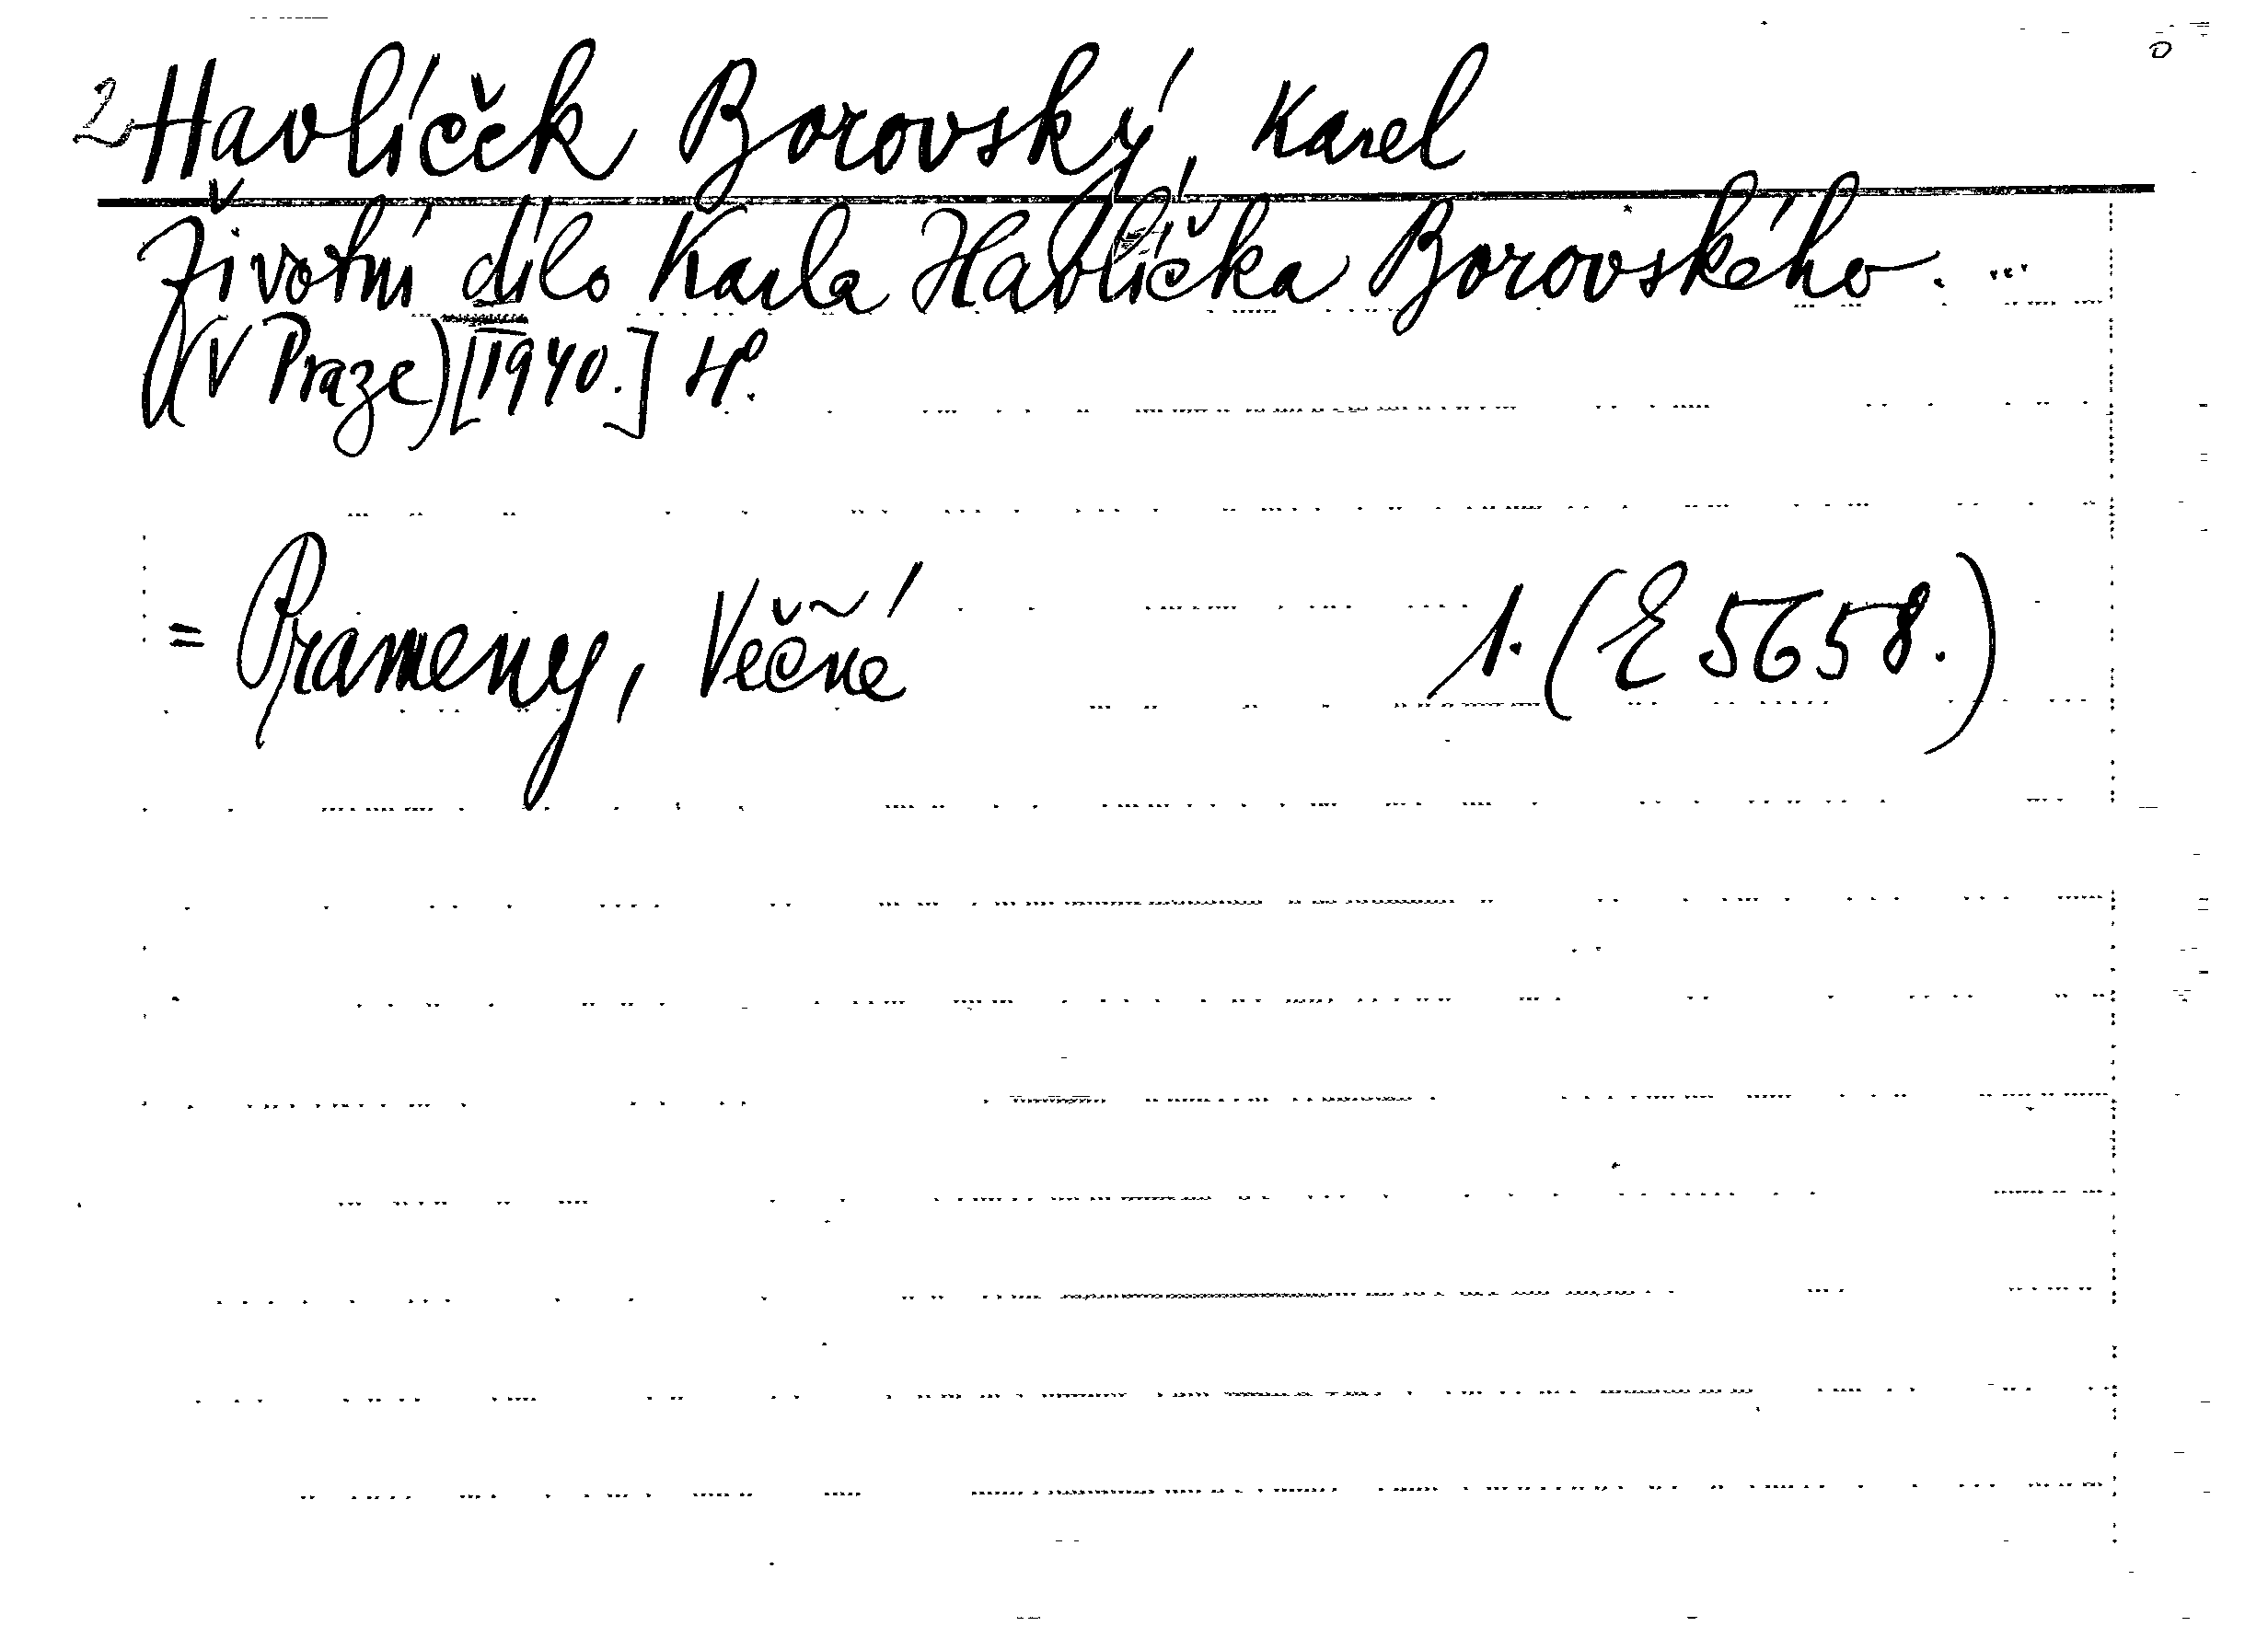 2 Havlíček Borovský, Karel
Životní dílo Karla Havlíčka Borovského. ...
(V Praze) [1940.] 4°.
= Prameny, Věčné 1. (E 5658.)